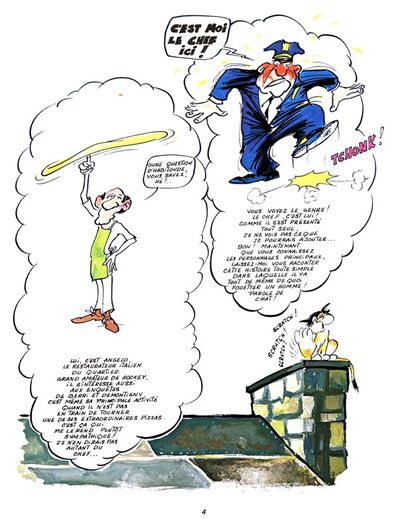 C'EST MOI
LE CHEF
ICI !
TCHONK !
OUNE QUESTION
D'HABITOUDE,
VOUS SAVEZ,
HÉ !..
VOUS VOYEZ LE GENRE !
LE CHEF, C'EST LUI !
COMME IL S'EST PRÉSENTÉ
TOUT SEUL,
JE NE VOIS PAS CE QUE
JE POURRAIS AJOUTER...
BON ! MAINTENANT
QUE VOUS CONNAISSEZ
LES PERSONNAGES PRINCIPAUX,
LAISSEZ-MOI VOUS RACONTER
CETTE HISTOIRE TOUTE SIMPLE
DANS LAQUELLE IL Y A
TOUT DE MÊME DE QUOI
FOUETTER UN HOMME !
PAROLE DE
CHAT !
SCRATCH !
SCRATCH !
SCRATCH !
LUI, C'EST ANGELO,
LE RESTAURATEUR ITALIEN
DU QUARTIER.
GRAND AMATEUR DE HOCKEY,
IL S'INTÉRESSE AUSSI
AUX ENQUÊTES
DE BERRI ET DEMONTIGNY.
C'EST MÊME SA PRINCIPALE ACTIVITÉ
QUAND IL N'EST PAS
EN TRAIN DE TOURNER
UNE DE SES EXTRAORDINAIRES PIZZAS.
C'EST ÇA QUI
ME LE REND PLUTÔT
SYMPATHIQUE !
JE N'EN DIRAIS PAS
AUTANT DU
CHEF...
4